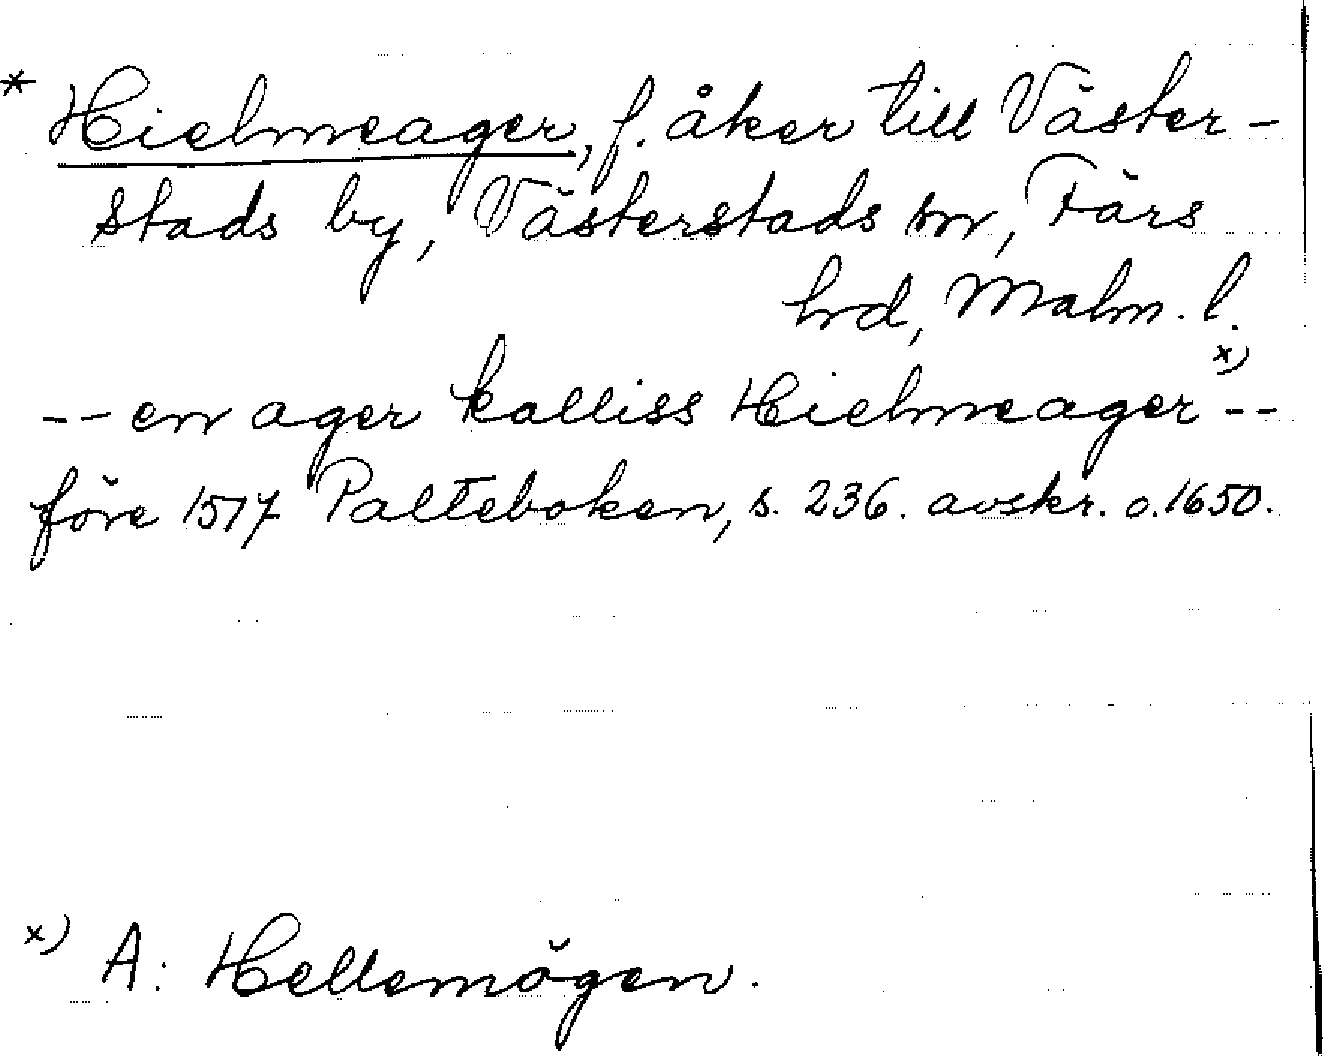 * Hielmeager, f. åker till Väster-
stads by, Västerstads sn, Färs
hrd, Malm. l.
-- en ager kalliss Hielmeager x) --
före 1517 Palteboken, s. 236. avskr. o. 1650.
x) A: Hellemögen.